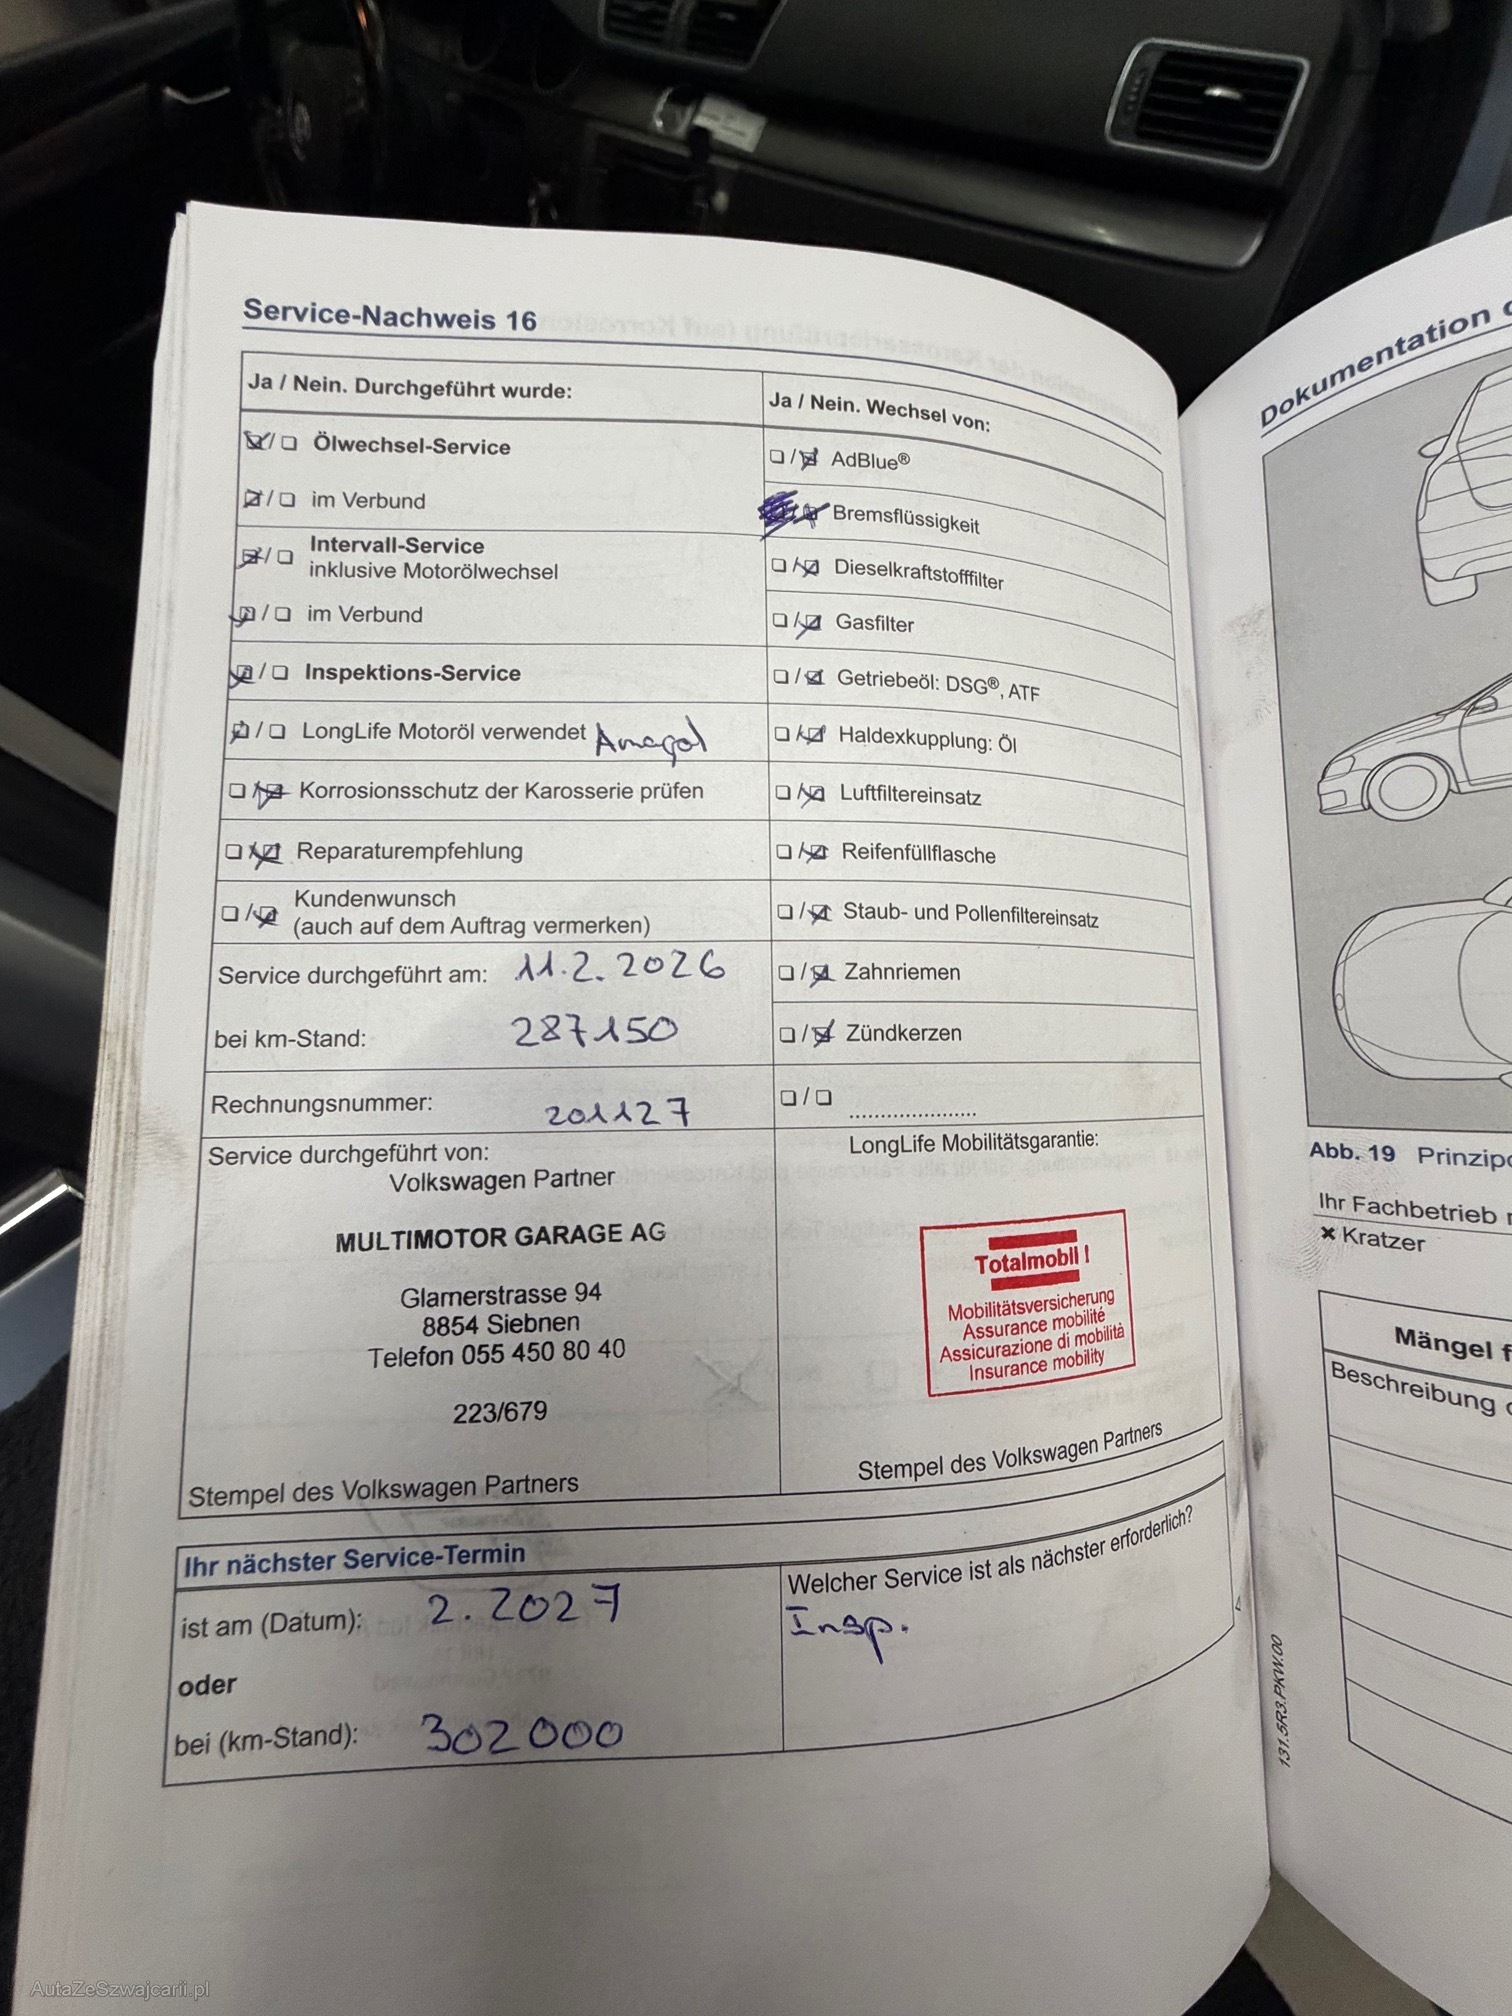 Service-Nachweis 16
Ja / Nein. Durchgeführt wurde:
Ölwechsel-Service
im Verbund
Intervall-Service
inklusive Motorölwechsel
im Verbund
Inspektions-Service
LongLife Motoröl verwendet
Korrosionsschutz der Karosserie prüfen
Reparaturempfehlung
Kundenwunsch
(auch auf dem Auftrag vermerken)
Service durchgeführt am: 11.2.2026
bei km-Stand: 287150
Rechnungsnummer: 201127
Ja / Nein. Wechsel von:
AdBlue®
Bremsflüssigkeit
Dieselkraftstofffilter
Gasfilter
Getriebeöl: DSG®, ATF
Haldexkupplung: Öl
Luftfiltereinsatz
Reifenfüllflasche
Staub- und Pollenfiltereinsatz
Zahnriemen
Zündkerzen
Service durchgeführt von:
Volkswagen Partner
MULTIMOTOR GARAGE AG
Glarnerstrasse 94
8854 Siebnen
Telefon 055 450 80 40
223/679
Stempel des Volkswagen Partners
LongLife Mobilitätsgarantie:
Totalmobil !
Mobilitätsversicherung
Assurance mobilité
Assicurazione di mobilità
Insurance mobility
Stempel des Volkswagen Partners
Ihr nächster Service-Termin
ist am (Datum): 2.2027
oder
bei (km-Stand): 302000
Welcher Service ist als nächster erforderlich?
Insp.
131.5R3.PKW.00
Dokumentation
Abb. 19
Ihr Fachbetrieb
× Kratzer
Mängel
Beschreibung
AutaZeSzwajcarii.pl